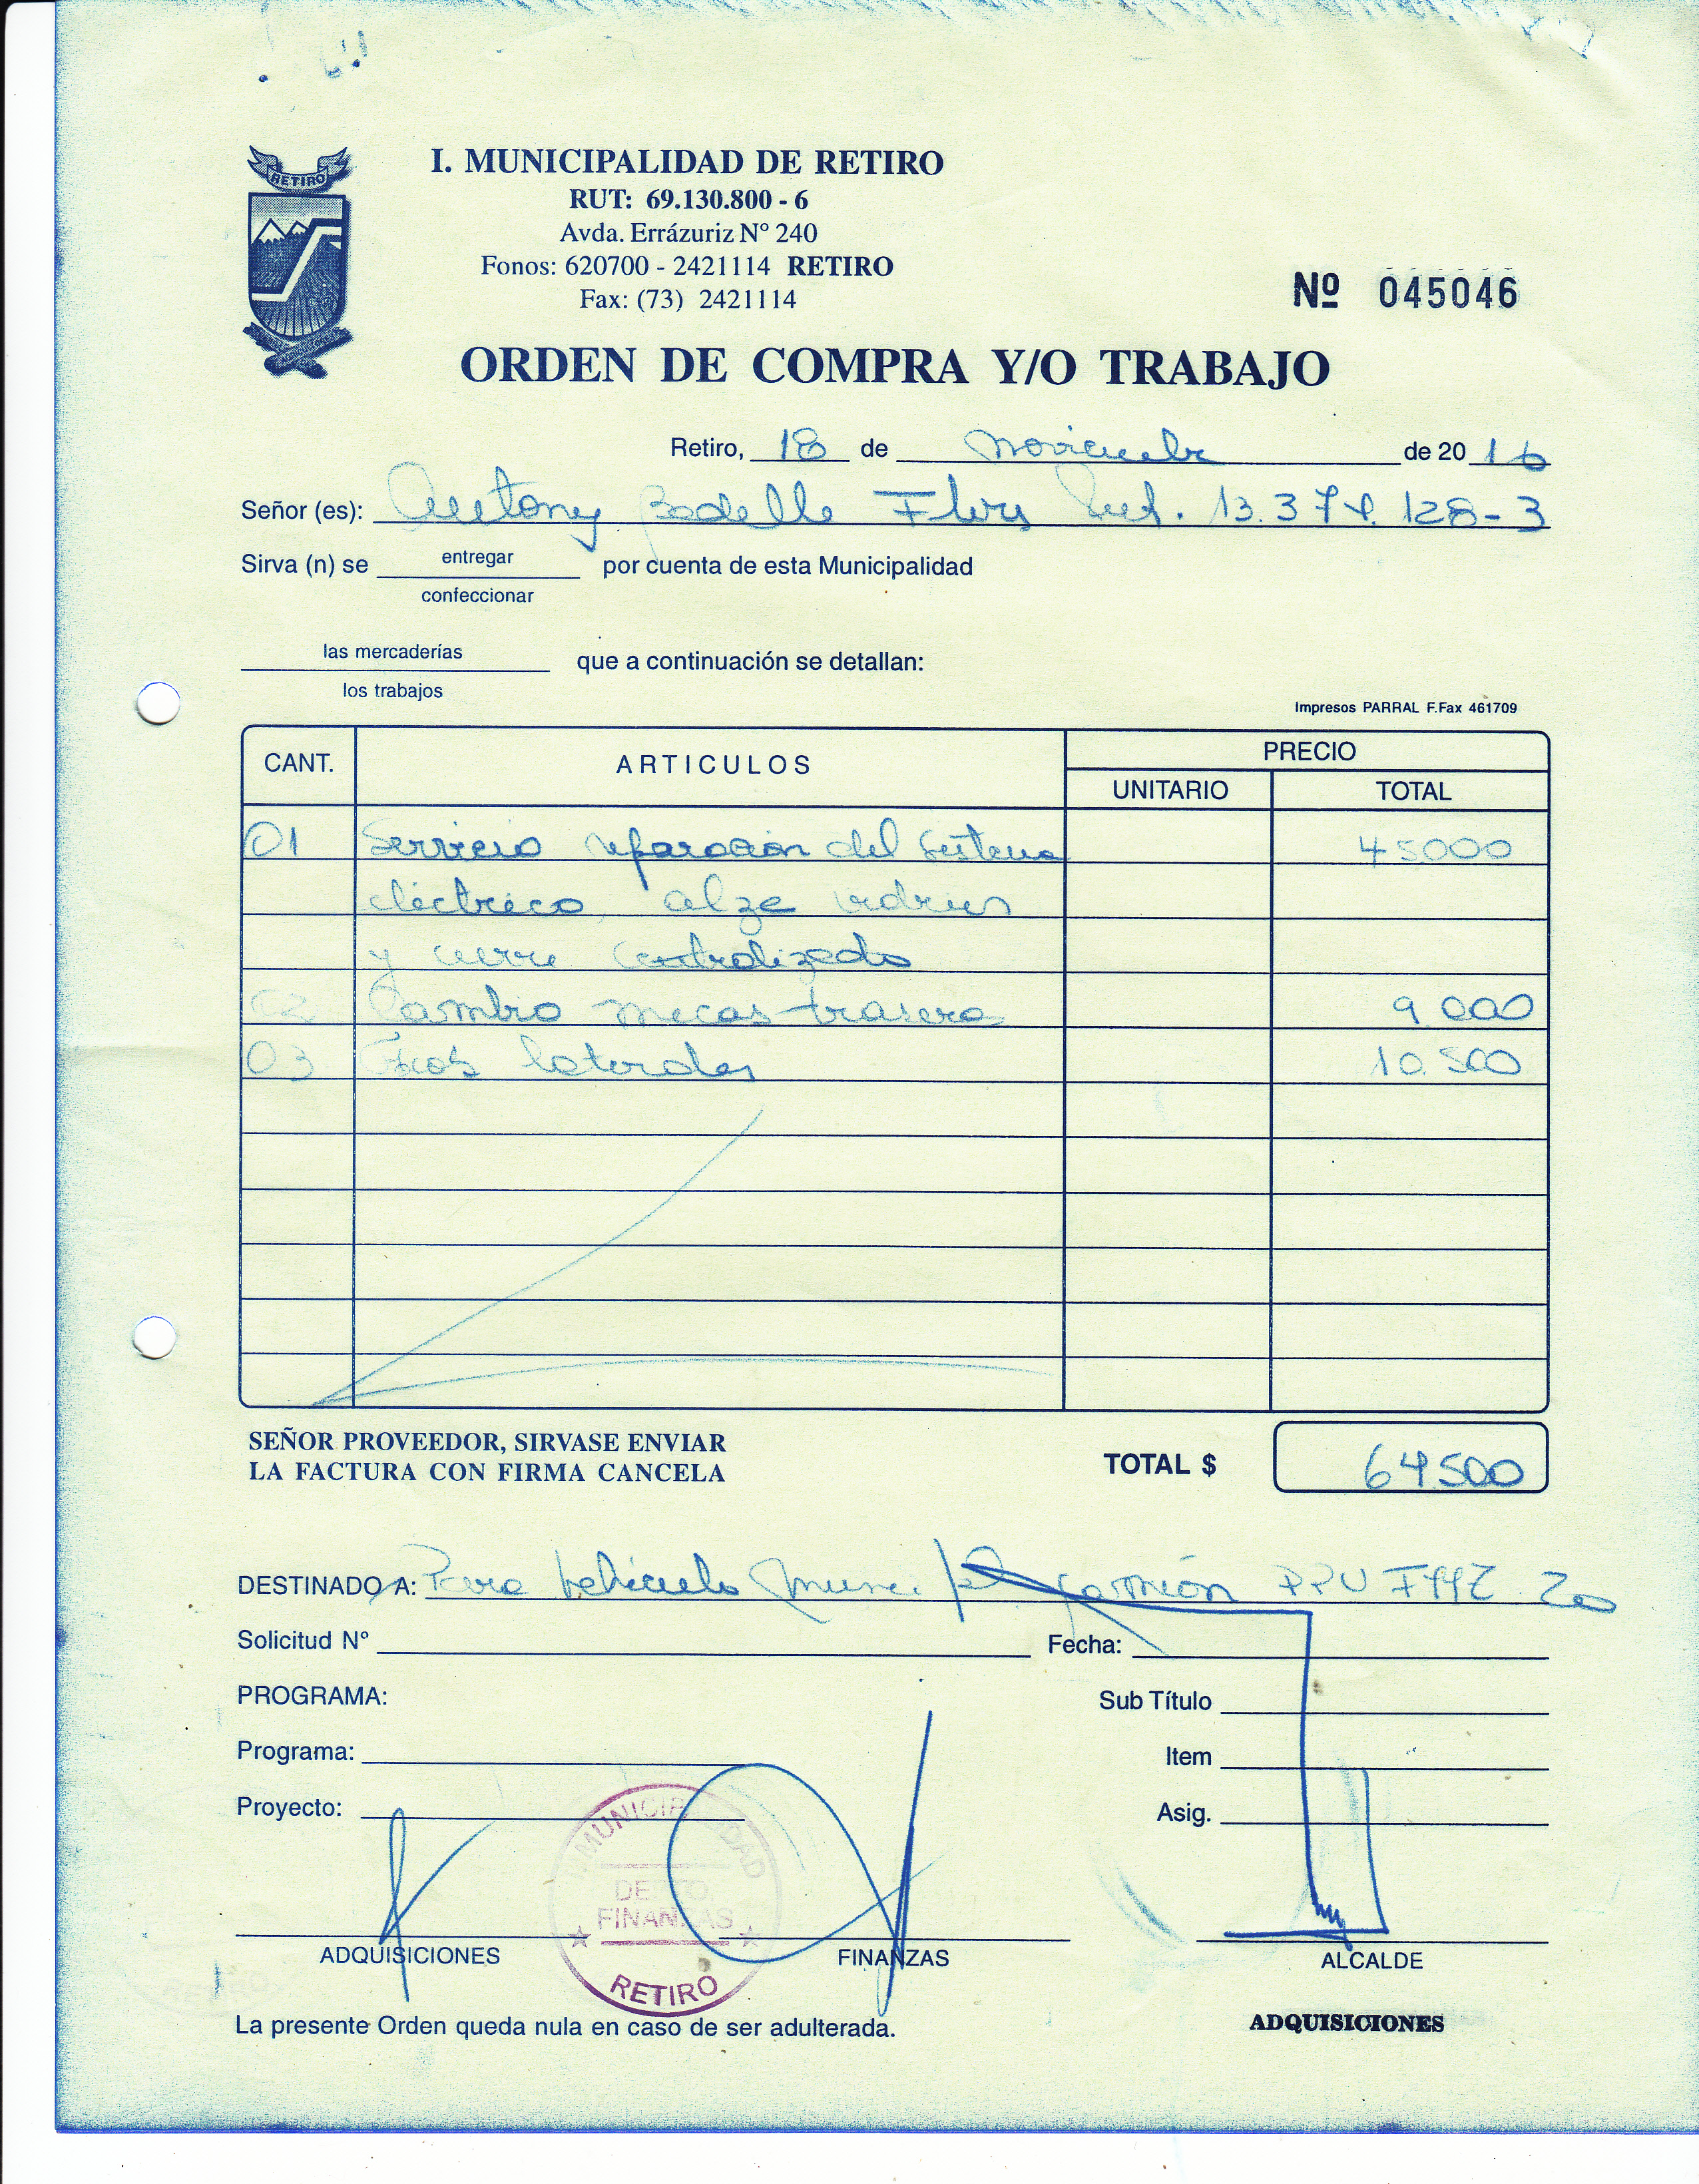 RETIRO
I. MUNICIPALIDAD DE RETIRO
RUT: 69.130.800 - 6
Avda. Errázuriz Nº 240
Fonos: 620700 - 2421114 RETIRO
Fax: (73) 2421114
Nº 045046
ORDEN DE COMPRA Y/O TRABAJO
Retiro, 18 de Noviembre de 2016
Señor (es): Antony Badilla Flores Rut. 13.374.128-3
Sirva (n) se entregar por cuenta de esta Municipalidad
confeccionar
las mercaderías que a continuación se detallan:
los trabajos
Impresos PARRAL F.Fax 461709
CANT. ARTICULOS PRECIO
UNITARIO TOTAL
01 Servicio reparación del sistema 45000
eléctrico, alza vidrios
y cierre centralizado
02 Cambio micas trasera 9.000
03 Focos laterales 10.500
SEÑOR PROVEEDOR, SIRVASE ENVIAR
LA FACTURA CON FIRMA CANCELA
TOTAL $ 64.500
DESTINADO A: Para vehículo municipal camión PPU FYYZ 20
Solicitud Nº Fecha:
PROGRAMA: Sub Título
Programa: Item
Proyecto: Asig.
I. MUNICIPALIDAD
DEPTO.
FINANZAS
RETIRO
ADQUISICIONES FINANZAS ALCALDE
La presente Orden queda nula en caso de ser adulterada.
ADQUISICIONES